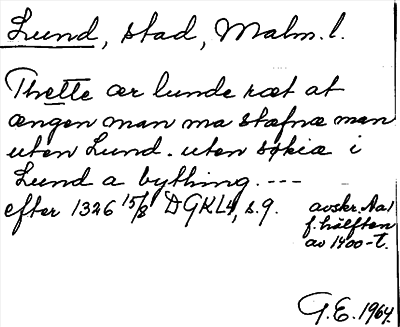 Lund, stad, Malm. l.
Thette ær lunde ræt at
ængen man ma stæfnæ man
uten Lund. uten søkiæ i
Lund a bything. ---
efter 1326 15/8 DGKL4, s. 9.
avskr. Aa1
f. hälften
av 1400-t.
G.E. 1964.